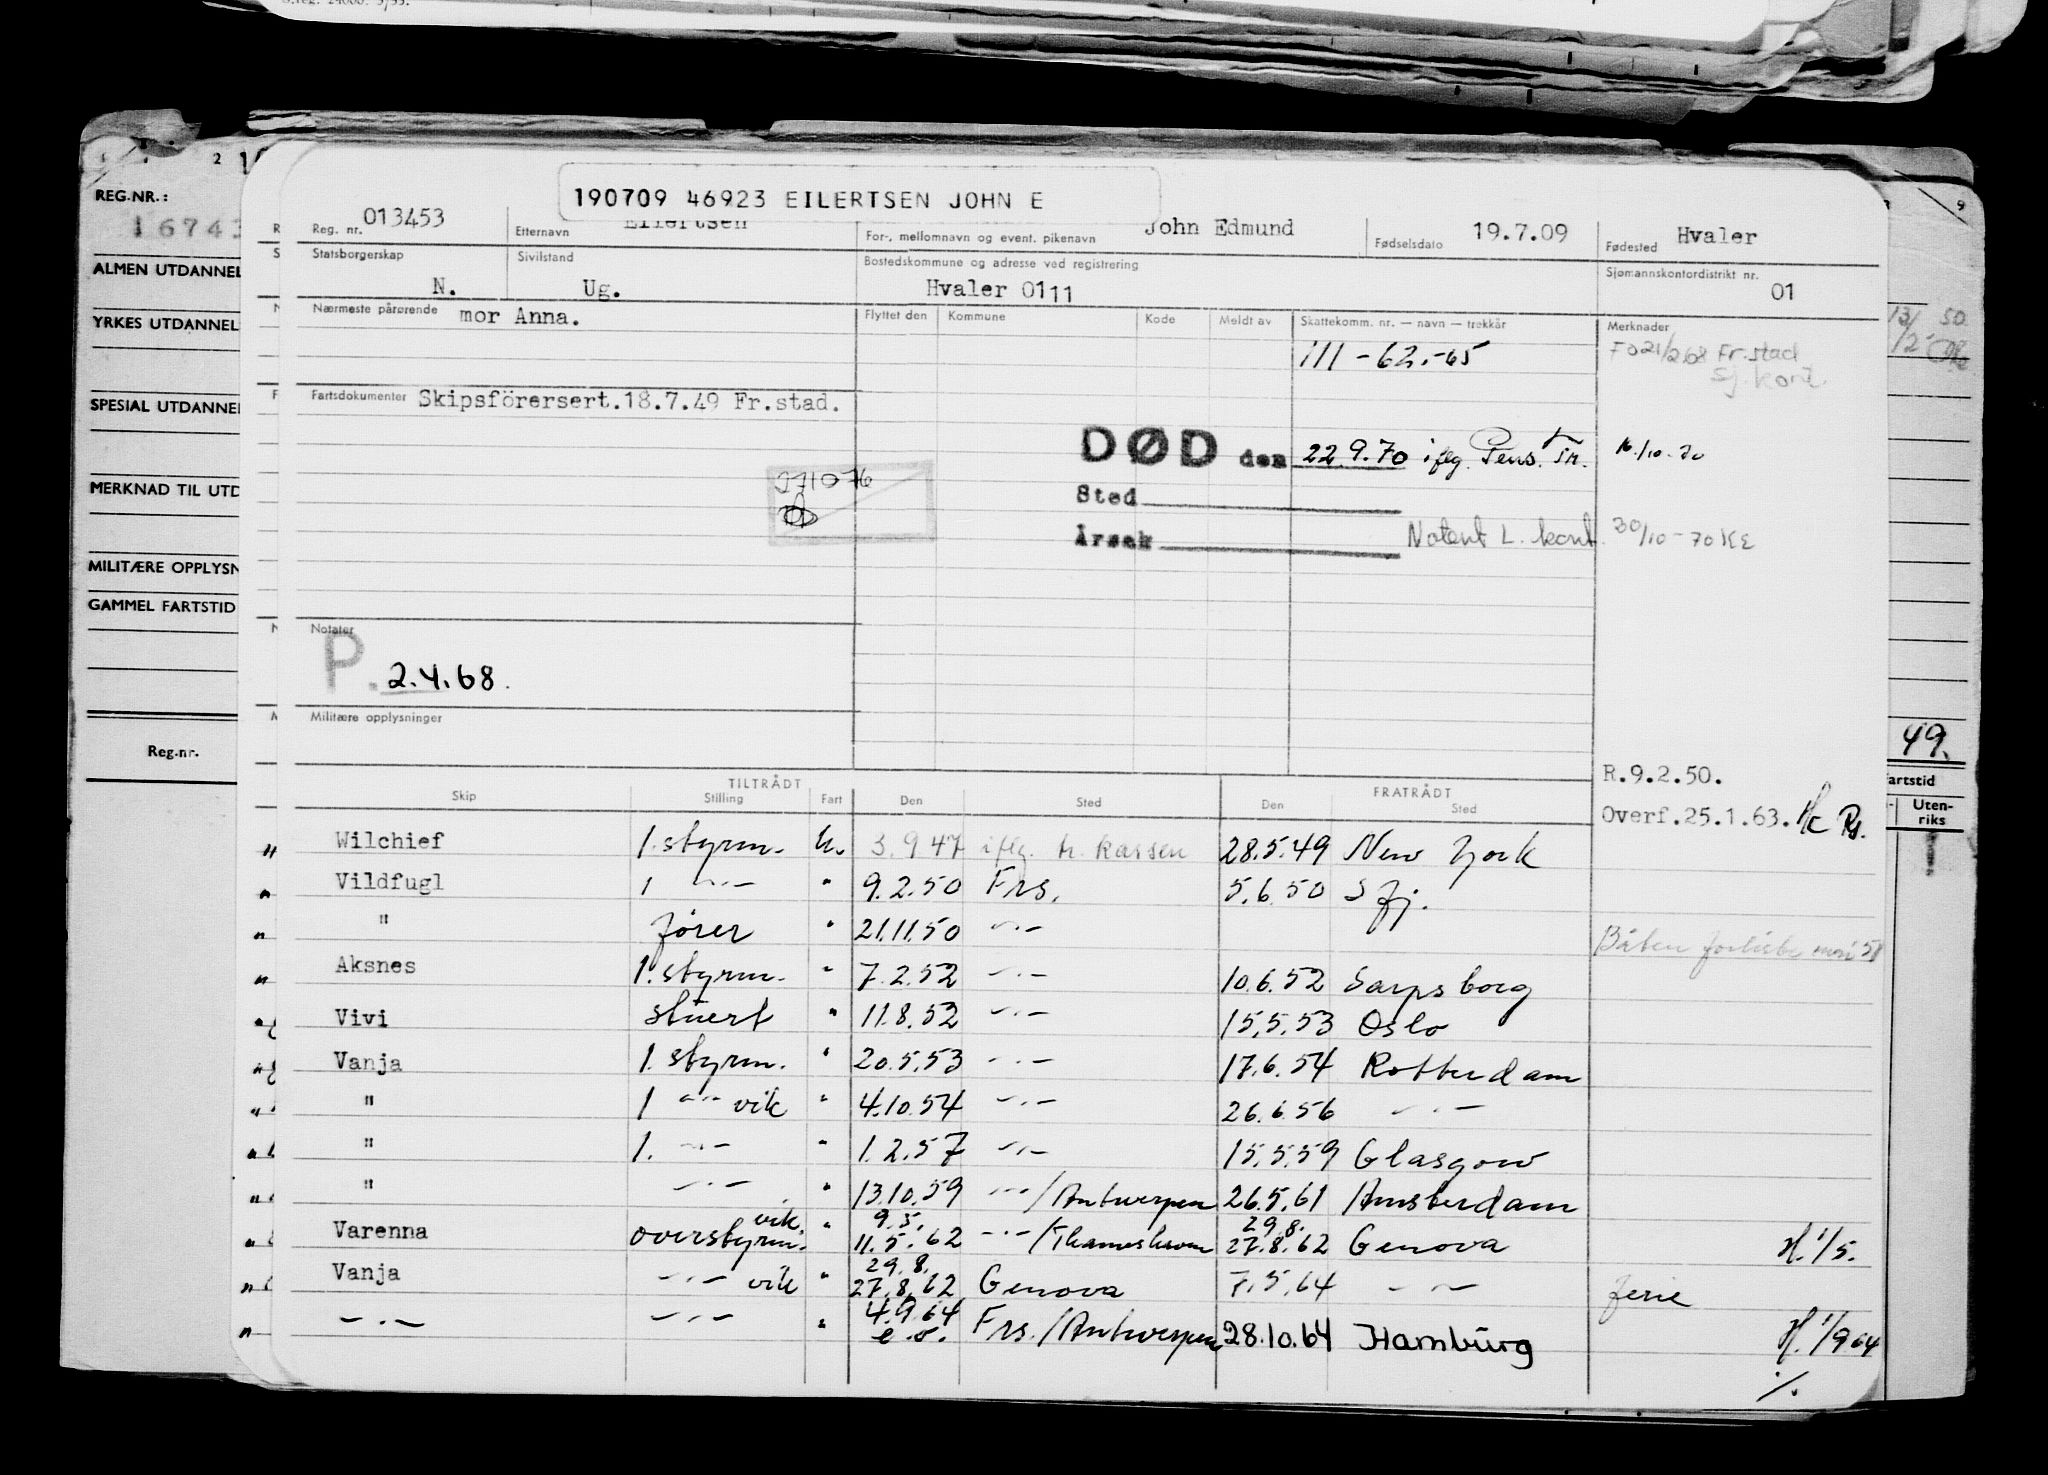 REG.NR.:
16743
ALMEN UTDANNEL
YRKES UTDANNEL
SPESIAL UTDANNEL
MERKNAD TIL UTD
MILITÆRE OPPLYSN
GAMMEL FARTSTID
Reg.nr.
190709 46923 EILERTSEN JOHN E
Reg. nr. 013453 Etternavn Eilertsen For-, mellomnavn og event. pikenavn John Edmund Fødselsdato 19.7.09 Fødested Hvaler
Statsborgerskap N. Sivilstand Ug. Bostedskommune og adresse ved registrering Hvaler 0111 Sjømannskontordistrikt nr. 01
Nærmeste pårørende mor Anna. Flyttet den Kommune Kode Meldt av Skattekomm. nr. — navn — trekkår Merknader
111 - 62.-65 FO 21/2 68 Fr.stad
Sj. kont.
Fartsdokumenter Skipsförersert.18.7.49 Fr.stad.
DØD den 22.9.70 iflg. Pens. Tr. 16/10.70
Sted
Årsak Notert L. kont. 30/10-70 KE
271076
Notater
P. 2.4.68.
Militære opplysninger
R.9.2.50.
Overf.25.1.63.
TILTRÅDT FRATRÅDT
Skip Stilling Fart Den Sted Den Sted
Wilchief 1.styrm. U. 3.9 47 iflg. tr. kassen 28.5.49 New York
Vildfugl 1 -"- " 9.2.50 Frs. 5.6.50 Sfj.
" fører " 21.11.50 -"- Båten forliste
Aksnes 1.styrm. " 7.2.52 -"- 10.6.52 Sarpsborg
Vivi stuert " 11.8.52 -"- 15.5.53 Oslo
Vanja 1.styrm. " 20.5.53 -"- 17.6.54 Rotterdam
" 1 -"- vik " 4.10.54 -"- 26.6.56 -"-
" 1. -"- " 1.2.57 -"- 15.5.59 Glasgow
" -"- " 13.10.59 -"-/Antwerpen 26.5.61 Amsterdam
Varenna overstyrm. vik. " 9.5. 11.5.62 -"-/Thameshaven 29.8. 27.8.62 Genova H.1/5.
Vanja -"- vik " 29.8. 27.8.62 Genova 7.5.64 -"- ferie
-"- -"- " 4.9.64 e.o. Frs./Antwerpen 28.10.64 Hamburg H.1/9 64
%.
49.
Fartstid
Uten-
riks